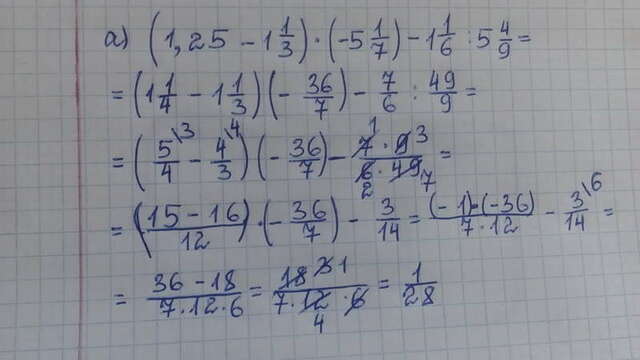 а) (1,25 - 1 1/3) · (-5 1/7) - 1 1/6 : 5 4/9 =
= (1 1/4 - 1 1/3) (- 36/7) - 7/6 : 49/9 =
= (5/4 \3 - 4/3 \4) (- 36/7) - 7 1 · 9 3 / 6 2 · 49 7 =
= (15 - 16)/12 · (- 36/7) - 3/14 = (- 1) · (-36) / 7 · 12 - 3/14 \6 =
= 36 - 18 / 7 · 12 · 6 = 18 3 1 / 7 · 12 4 · 6 = 1/28